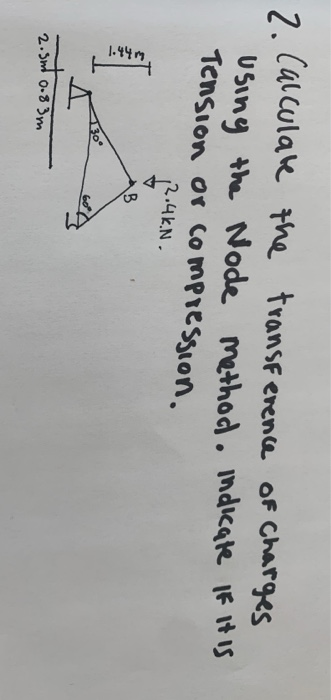 2. Calculate the transference of charges
using the Node method. indicate if it is
Tension or compression.
2.4kN.
B
1.44m
30°
60°
2.5m 0.83m